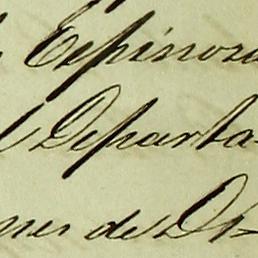 Espinoza
l Departa-
nes de Di